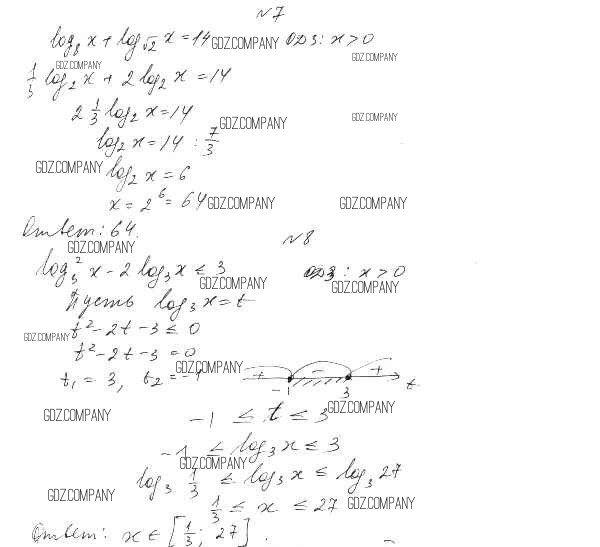 №7
log₈ x + log_√2 x = 14 GDZ.COMPANY ОДЗ: x > 0
GDZ.COMPANY GDZ.COMPANY
1/3 log₂ x + 2 log₂ x = 14
2 1/3 log₂ x = 14 GDZ.COMPANY
GDZ.COMPANY
log₂ x = 14 : 7/3
GDZ.COMPANY log₂ x = 6
x = 2⁶ = 64 GDZ.COMPANY GDZ.COMPANY
Ответ: 64.
GDZ.COMPANY №8
log₃² x - 2 log₃ x ≤ 3 ОДЗ: x > 0
GDZ.COMPANY GDZ.COMPANY
Пусть log₃ x = t
GDZ.COMPANY t² - 2t - 3 ≤ 0
t² - 2t - 3 = 0
GDZ.COMPANY
t₁ = 3, t₂ = -1 + - + t
-1 3
GDZ.COMPANY -1 ≤ t ≤ 3 GDZ.COMPANY
-1 ≤ log₃ x ≤ 3
GDZ.COMPANY
log₃ 1/3 ≤ log₃ x ≤ log₃ 27
GDZ.COMPANY 1/3 ≤ x ≤ 27 GDZ.COMPANY
Ответ: x ∈ [1/3; 27].